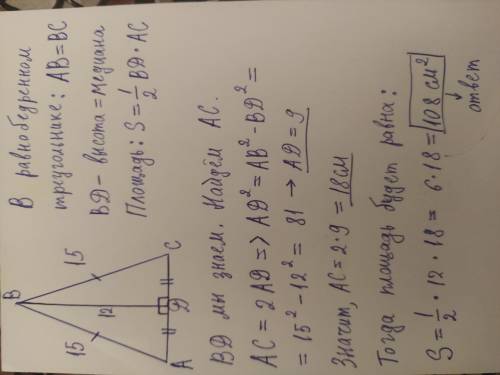 В равнобедренном
треугольнике: AB=BC
BD - высота = медиана
Площадь: S = 1/2 BD · AC
B
15
15
12
A
D
C
BD мы знаем. Найдём AC.
AC = 2AD => AD² = AB² - BD² =
= 15² - 12² = 81 → AD = 9
Значит, AC = 2·9 = 18 см
Тогда площадь будет равна:
S = 1/2 · 12 · 18 = 6·18 = 108 см²
ответ